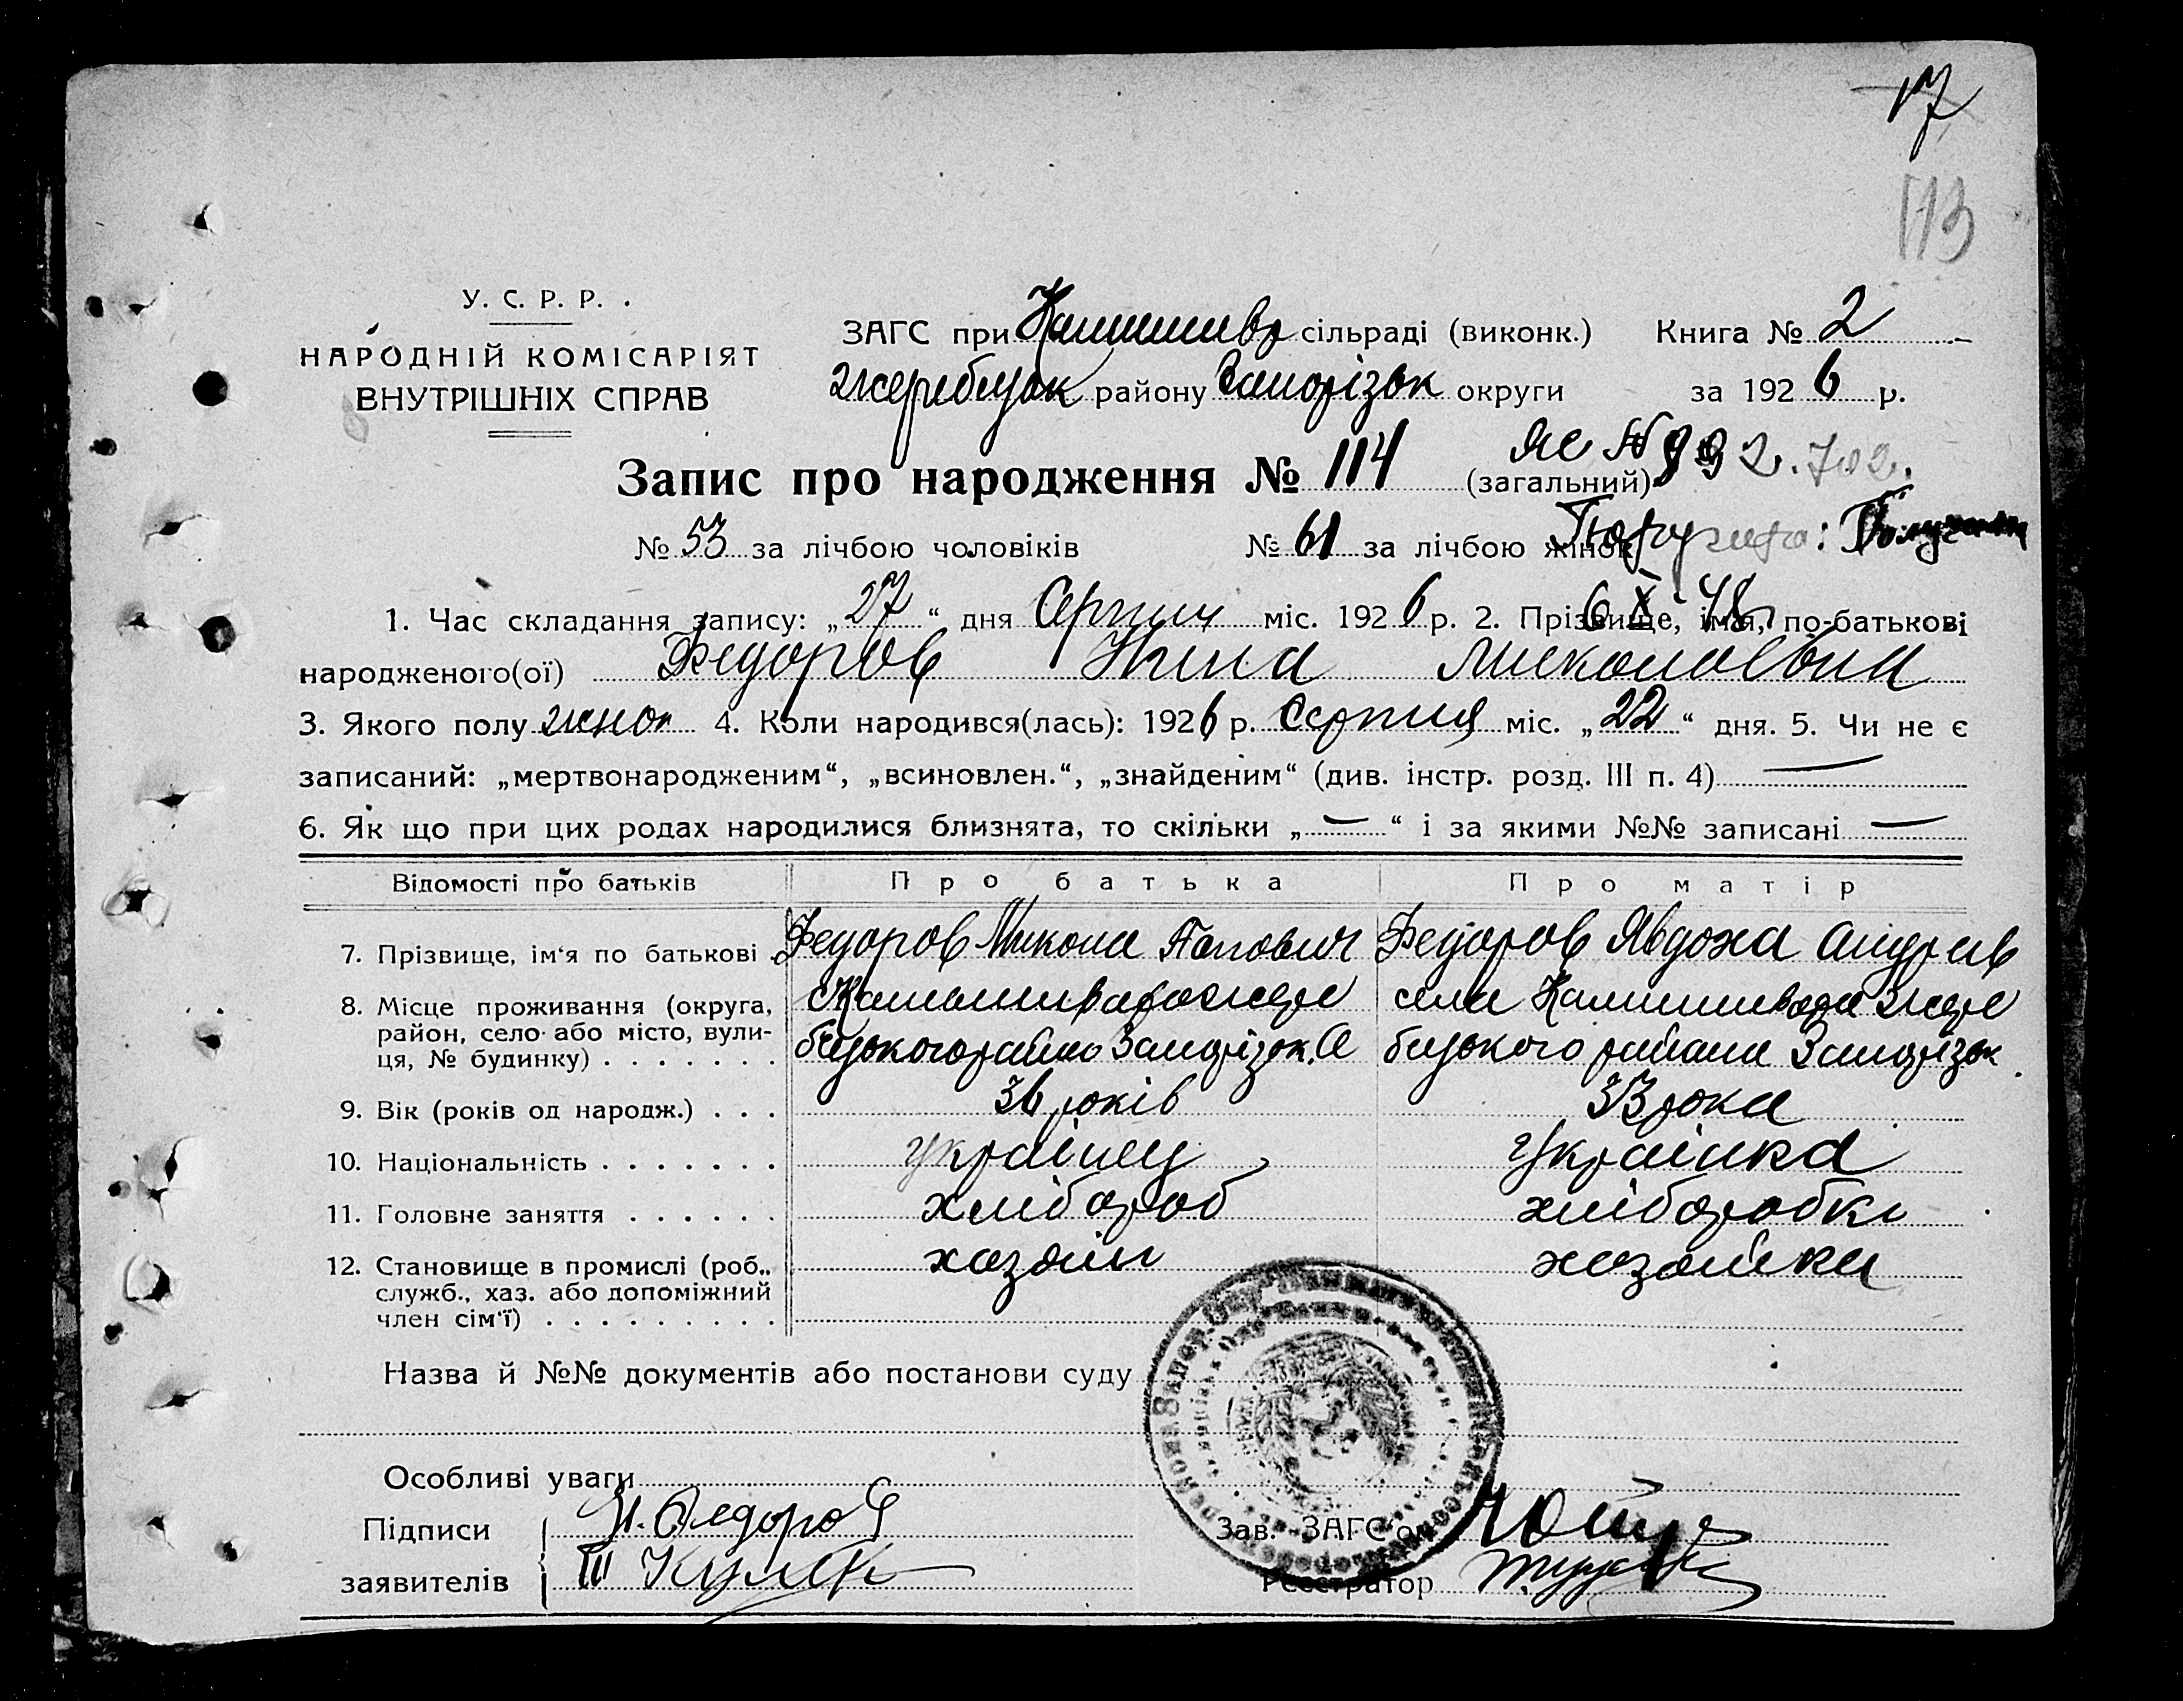 17
113
У. С. Р. Р.
НАРОДНІЙ КОМІСАРІЯТ
ВНУТРІШНІХ СПРАВ
ЗАГС при сільраді (виконк.) Книга № 2
району Запорізьк округи за 1926 р.
Запис про народження № 114 (загальний)
№ 53 за лічбою чоловіків № 61 за лічбою жінок
6 X 48
1. Час складання запису: „27“ дня Серпня міс. 1926 р. 2. Прізвище, ім'я, по-батькові
народженого(ої) Федоров Нина Миколаевна
3. Якого полу жіноч 4. Коли народився(лась): 1926 р. Серпня міс. „22“ дня. 5. Чи не є
записаний: „мертвонародженим“, „всиновлен.“, „знайденим“ (див. інстр. розд. III п. 4) —
6. Як що при цих родах народилися близнята, то скільки „—“ і за якими №№ записані —
Відомості про батьків Про батька Про матір
7. Прізвище, ім'я по батькові Федоров Микола Федоров Явдоха Андріів
8. Місце проживання (округа,
район, село або місто, вули-
ця, № будинку) . . . . . . .
9. Вік (років од народж.) . . . 36 років 33 рока
10. Національність . . . . . . . українец Українка
11. Головне заняття . . . . . . хлібороб хліборобка
12. Становище в промислі (роб., хазяін хазяйка
служб., хаз. або допоміжний
член сім'ї) . . . . . . . . .
Назва й №№ документів або постанови суду
Особливі уваги
Підписи Н. Федоров Зав. ЗАГС'ом
заявителів Реєстратор